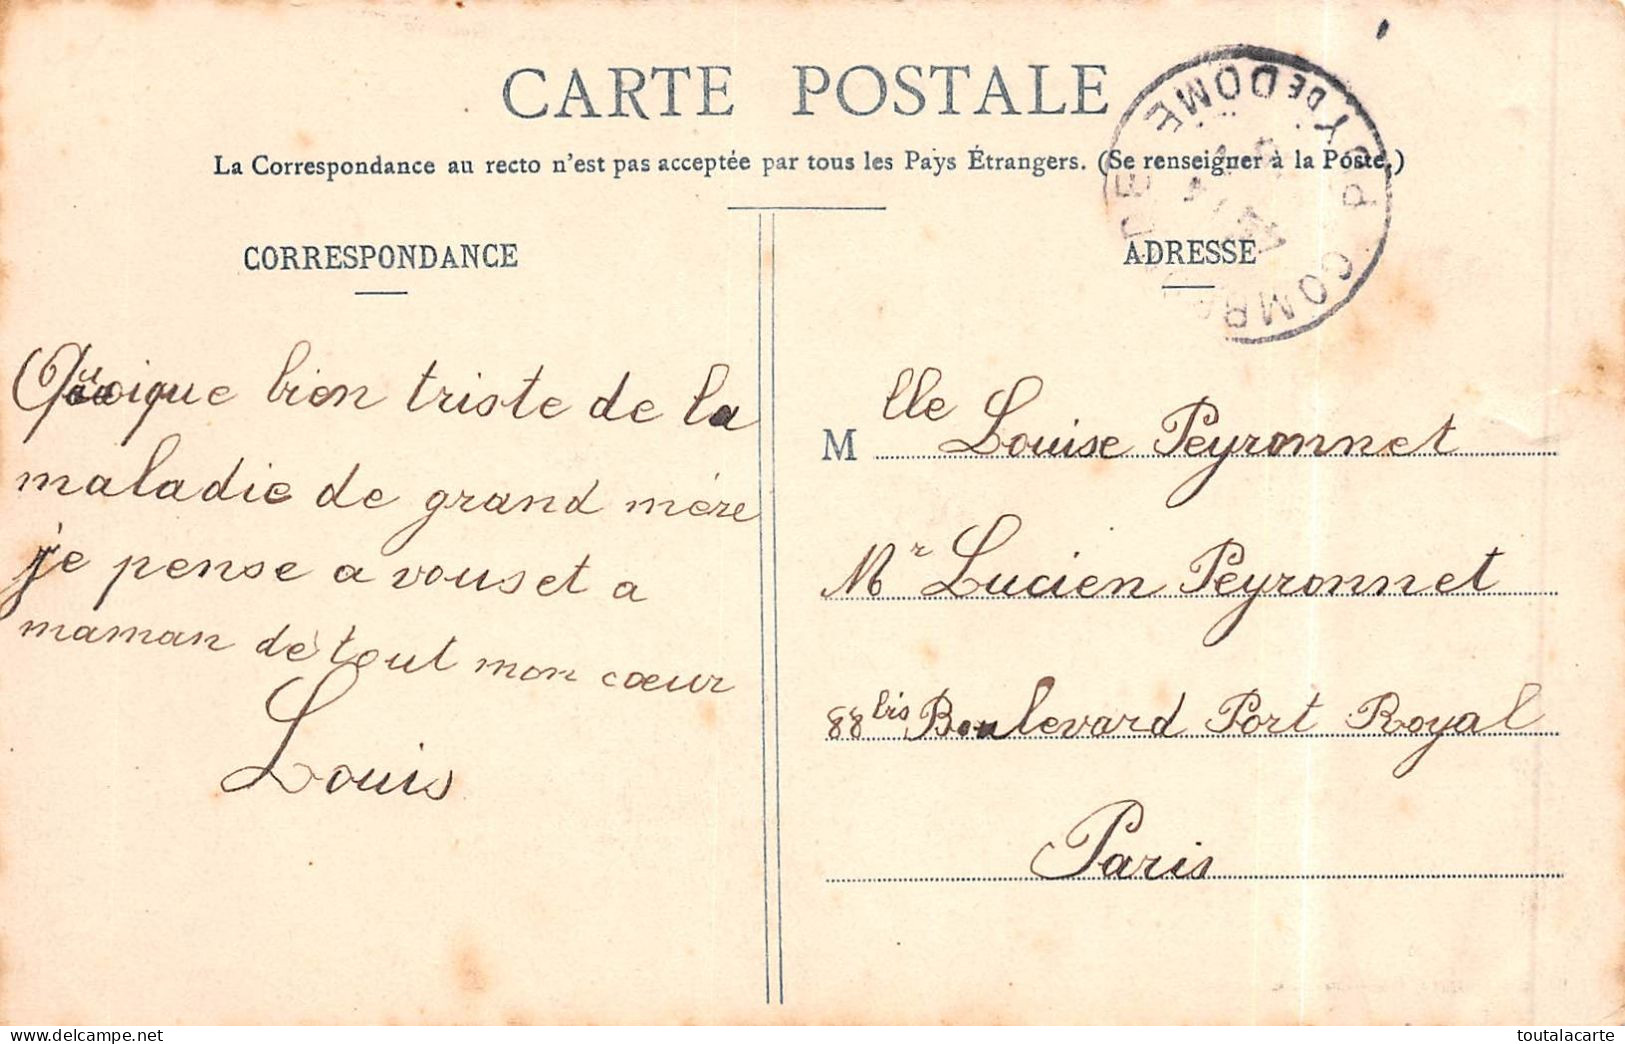 CARTE POSTALE
La Correspondance au recto n'est pas acceptée par tous les Pays Étrangers. (Se renseigner à la Poste.)
CORRESPONDANCE
Quoique bien triste de la
maladie de grand mére
je pense a vous et a
maman de tout mon cœur
Louis
ADRESSE
Mlle Louise Peyronnet
Mr Lucien Peyronnet
88 bis Boulevard Port Royal
Paris
PUY DE DOME
www.delcampe.net
toutalacarte